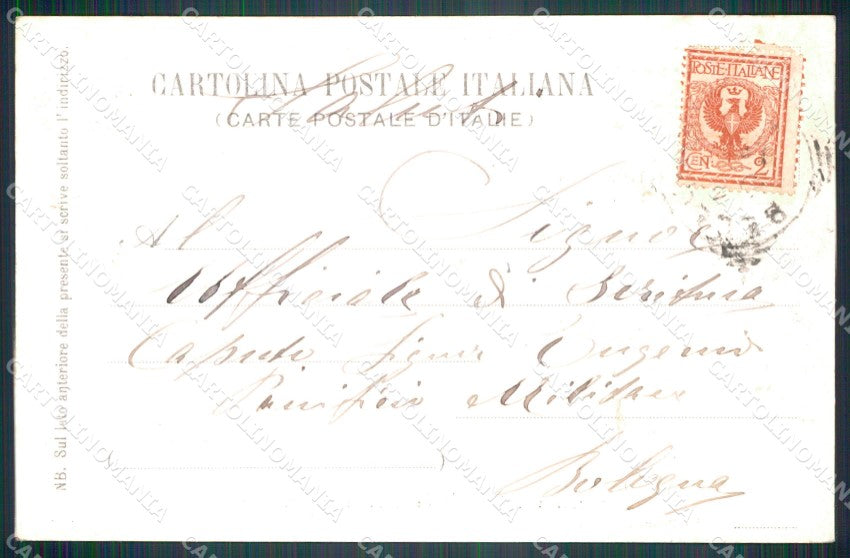 CARTOLINA POSTALE ITALIANA
(CARTE POSTALE D'ITALIE)
Saluti
POSTE·ITALIANE
CEN 2
Al Signor
Ufficiale di Scrittura
Caputo Signor Eugenio
Panificio Militare
Bologna
NB. Sul lato anteriore della presente si scrive soltanto l'indirizzo.
CARTOLINOMANIA